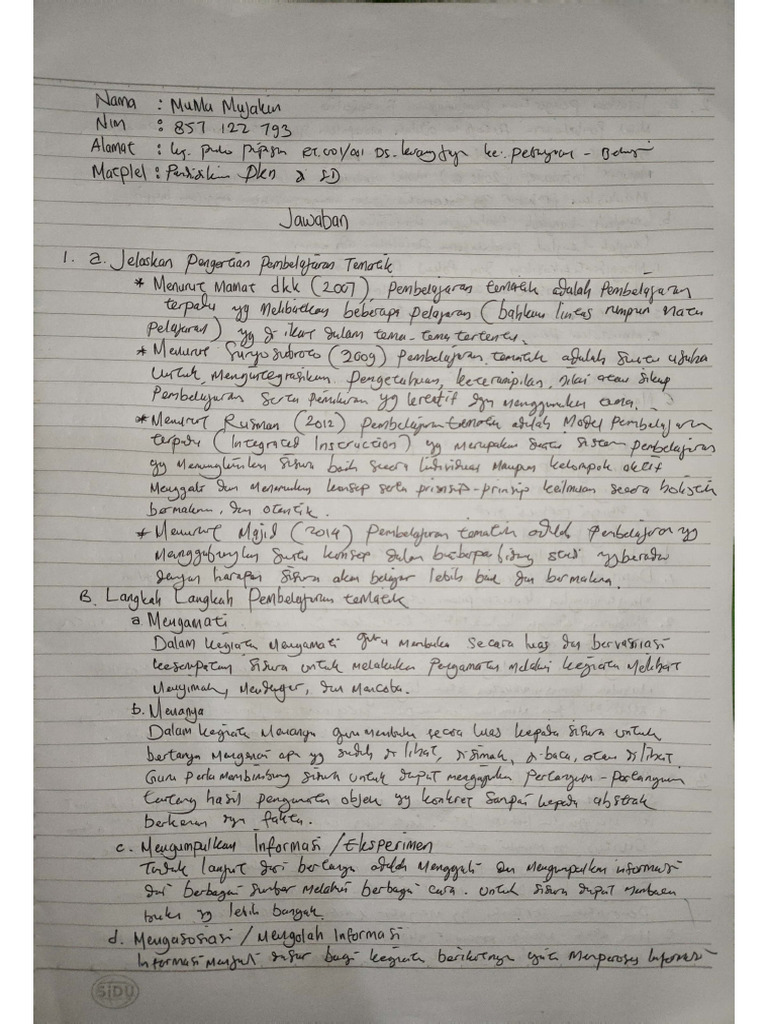 Nama : MuMu Mujakin
Nim : 857 122 793
Alamat : kg. pulo RT.001/001 Ds. karang
Matplel : Pendidikan Pkn di SD
Jawaban
1. a. Jelaskan Pengertian Pembelajaran Tematik
* Menurut Mamat dkk (2007) Pembelajaran tematik adalah Pembelajaran
terpadu yg Melibatkan beberapa pelajaran (bahkan lintas rumpun mata
Pelajaran) yg di ikat dalam tema-tema tertentu.
* Menurut Suryosubroto (2009) Pembelajaran tematik adalah suatu usaha
untuk Mengintegrasikan Pengetahuan, keterampilan, nilai atau sikap
Pembelajaran serta pemikiran yg kreatif dgn menggunakan tema.
* Menurut Rusman (2012) Pembelajaran tematik adalah Model Pembelajaran
terpadu (Integrated Instruction) yg merupakan suatu sistem pembelajaran
yg Memungkinkan siswa baik secara Individual Maupun kelompok aktif
Menggali dan Menemukan konsep serta prinsip-prinsip keilmuan secara holistik
bermakna, dan otentik.
* Menurut Majid (2014) Pembelajaran tematik adalah Pembelajaran yg
Menggabungkan suatu konsep dalam beberapa bidang studi yg berada
dengan harapan siswa akan belajar lebih baik dan bermakna.
B. Langkah Langkah Pembelajaran tematik
a. Mengamati
Dalam kegiatan Mengamati guru membuka secara luas dan bervariasi
kesempatan siswa untuk melakukan Pengamatan melalui kegiatan Melihat
Menyimak, Mendengar, dan Mencoba.
b. Menanya
Dalam kegiatan Menanya guru membuka secara luas kepada siswa untuk
bertanya Mengenai apa yg sudah di lihat, disimak, di-baca, atau di lihat.
Guru Perlu Membimbing siswa untuk dapat mengajukan Pertanyaan-Pertanyaan
tentang hasil pengamatan objek yg konkret sampai kepada abstrak
berkenaan dgn fakta.
c. Mengumpulkan Informasi / Eksperimen
Tindak lanjut dari bertanya adalah Menggali dan Mengumpulkan informasi
dari berbagai sumber melalui berbagai cara. untuk siswa dapat membaca
buku yg lebih banyak.
d. Mengasosiasi / Mengolah Informasi
Informasi Menjadi dasar bagi kegiatan berikutnya yaitu Memproses Informasi
SiDU